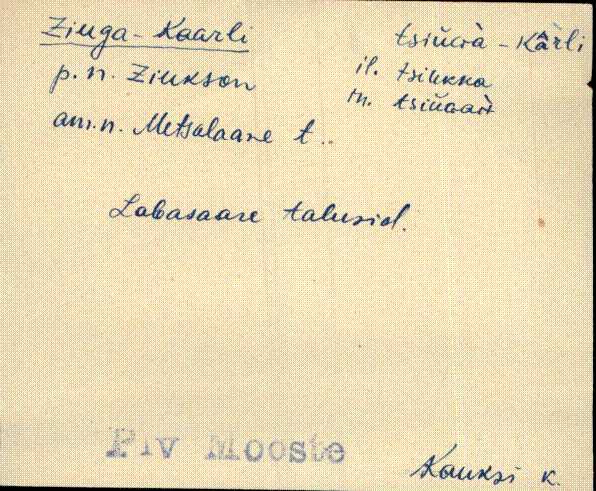 Ziuga-Kaarli
p.n. Ziukson
am.n. Metsalaane t..
-Kàrli
il. tsiukka
m.
Labasaare talusid.
Plv Mooste
Kauksi k.